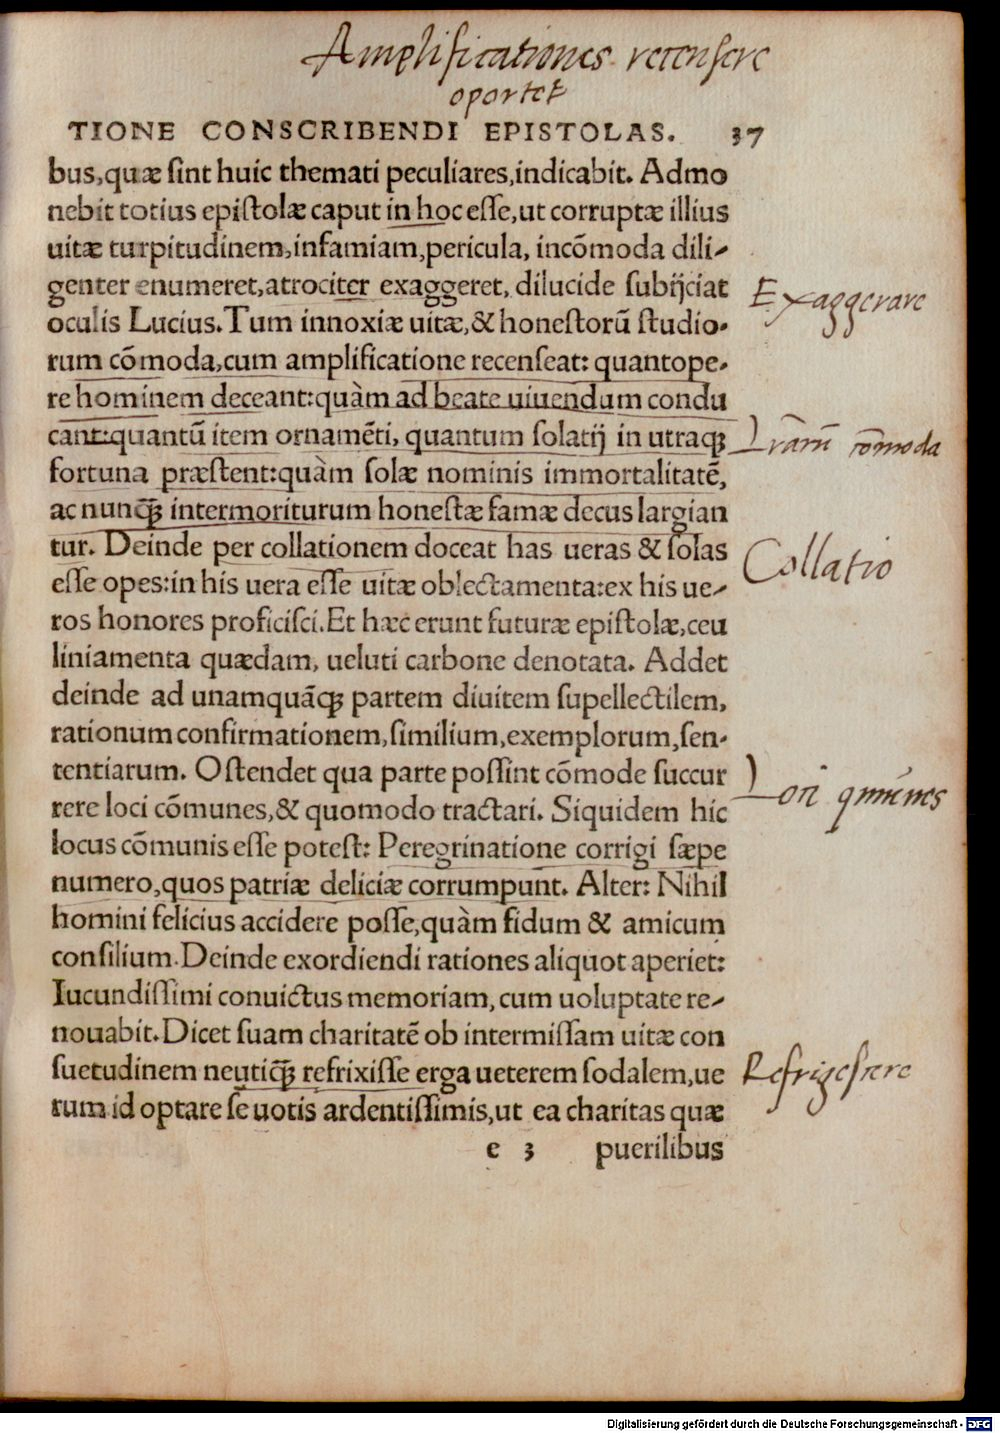 Amplificationes recensere
oportet
TIONE CONSCRIBENDI EPISTOLAS. 37
bus,quæ sint huic themati peculiares,indicabit. Admo
nebit totius epistolæ caput in hoc esse,ut corruptæ illius
uitæ turpitudinem,infamiam,pericula, incõmoda dili-
genter enumeret,atrociter exaggeret, dilucide subijciat
Exaggerare
oculis Lucius.Tum innoxiæ uitæ,& honestorũ studio-
rum cõmoda,cum amplificatione recenseat: quantope-
re hominem deceant:quàm ad beate uiuendum condu
cant:quantũ item ornamẽti, quantum solatij in utraqꝫ
cõmoda
fortuna præstent:quàm solæ nominis immortalitatẽ,
ac nunꝙꝫ intermoriturum honestæ famæ decus largian
tur. Deinde per collationem doceat has ueras & solas
Collatio
esse opes:in his uera esse uitæ oblectamenta:ex his ue-
ros honores proficisci.Et hæc erunt futuræ epistolæ,ceu
liniamenta quædam, ueluti carbone denotata. Addet
deinde ad unamquãqꝫ partem diuitem supellectilem,
rationum confirmationem,similium,exemplorum,sen-
tentiarum. Ostendet qua parte possint cõmode succur
Loci
rere loci cõmunes,& quomodo tractari. Siquidem hic
locus cõmunis esse potest: Peregrinatione corrigi sæpe
numero,quos patriæ deliciæ corrumpunt. Alter: Nihil
homini felicius accidere posse,quàm fidum & amicum
consilium.Deinde exordiendi rationes aliquot aperiet:
Iucundissimi conuictus memoriam,cum uoluptate re-
nouabit.Dicet suam charitatẽ ob intermissam uitæ con
suetudinem neutiꝙꝫ refrixisse erga ueterem sodalem,ue
Refrigescere
rum id optare se uotis ardentissimis,ut ea charitas quæ
e 3 puerilibus
Digitalisierung gefördert durch die Deutsche Forschungsgemeinschaft - DFG